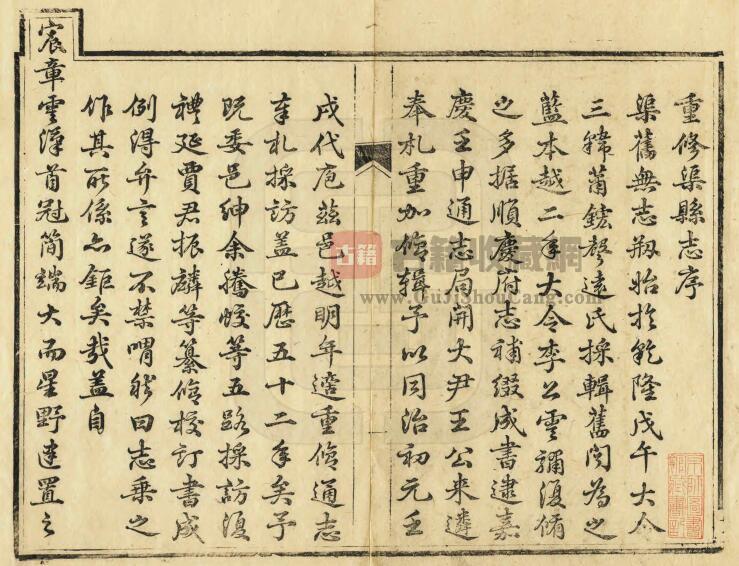 重修渠縣志序
渠舊無志刱始於乾隆戊午大令
三韓蕭鋐聲遠氏採輯舊聞為之
藍本越二年大令李公雲彌復脩
之多据順慶府志補綴成書逮嘉
慶壬申通志局開大尹王公來遴
奉札重加脩輯予以同治初元壬
戌代庖茲邑越明年適重脩通志
奉札採訪蓋已歷五十二年矣予
既委邑紳余騰蛟等五路採訪復
禮延賈君振麟等纂脩校訂書成
例得弁言遂不禁喟然曰志乘之
作其所係亦鉅矣哉蓋自
宸章雲漢首冠簡端大而星野建置之
古籍
古籍收藏網
www.GuJiShouCang.com